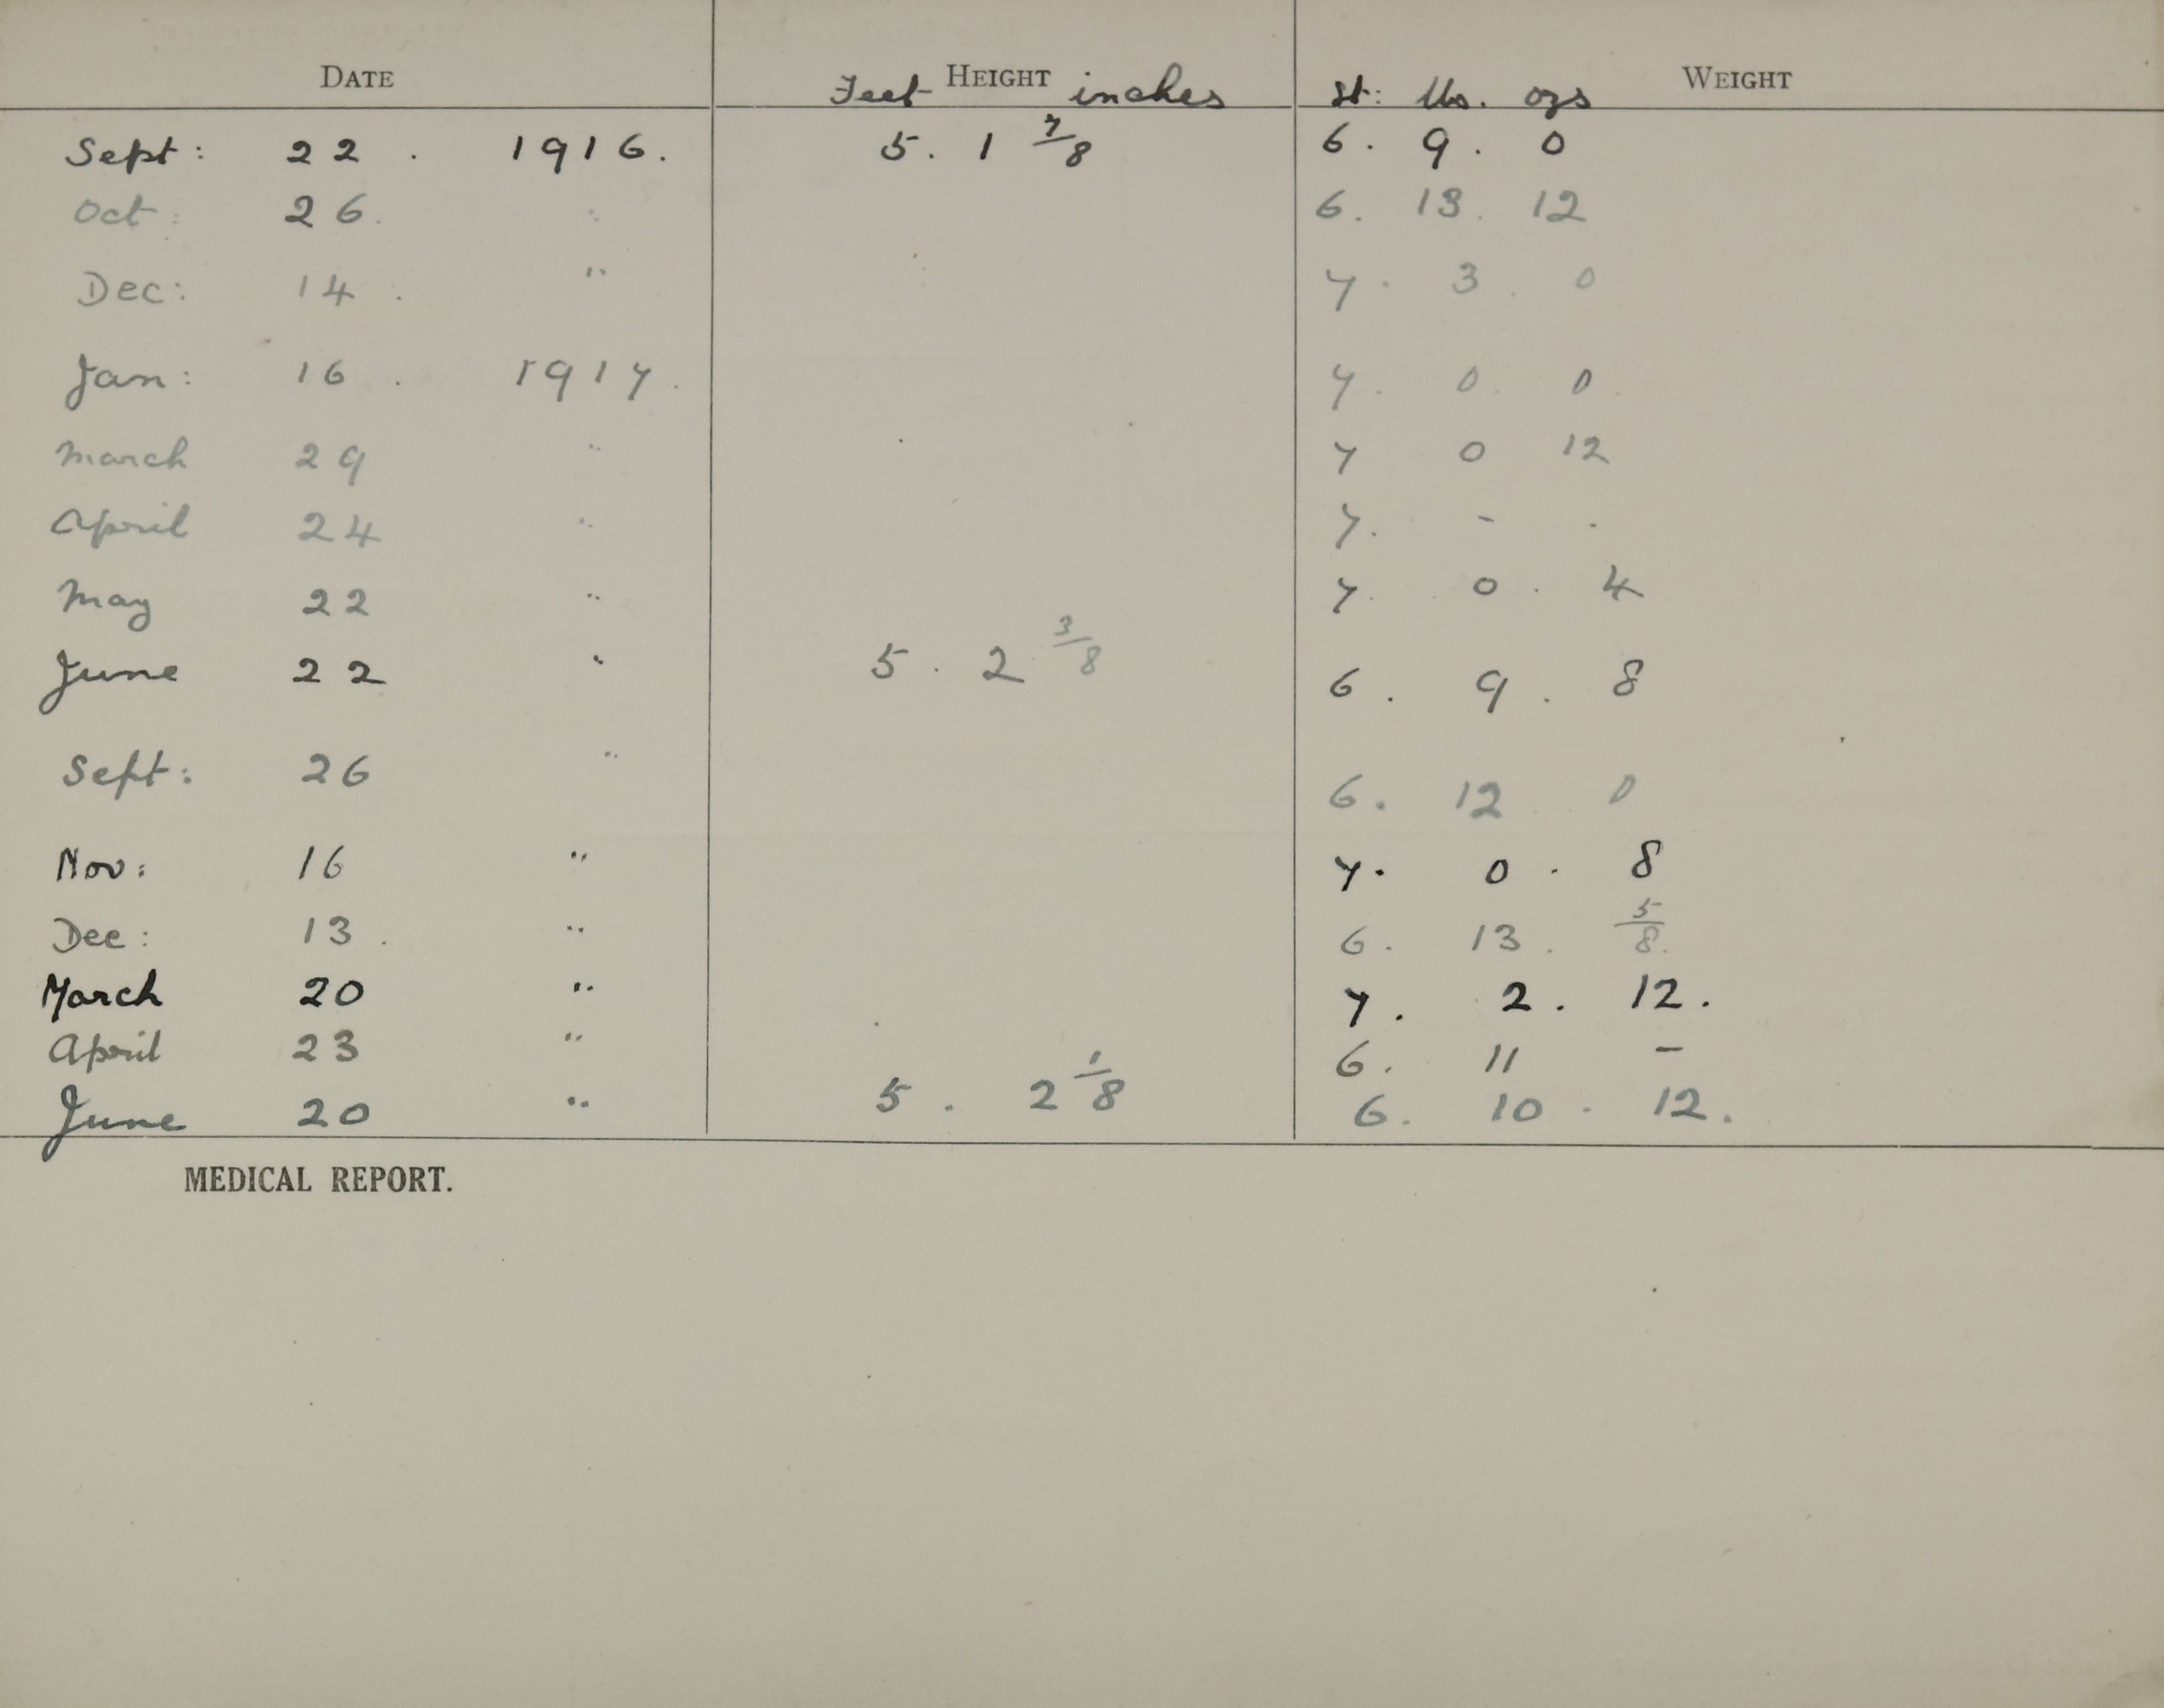 DATE HEIGHT WEIGHT
Feet inches st: lbs. ozs
Sept: 22. 1916. 5. 1 7/8 6. 9. 0
Oct: 26. " 6. 13. 12
Dec: 14. " 7. 3. 0
Jan: 16. 1917. 7. 0. 0.
March 29 " 7 0 12
April 24 " 7. - .
May 22 " 7. 0. 4
June 22 " 5. 2 3/8 6. 9. 8
Sept: 26 " 6. 12 0
Nov: 16 " 7. 0. 8
Dec: 13. " 6. 13. 5/8.
March 20 " 7. 2. 12.
April 23 " 6. 11 -
June 20 " 5. 2 1/8 6. 10. 12.
MEDICAL REPORT.